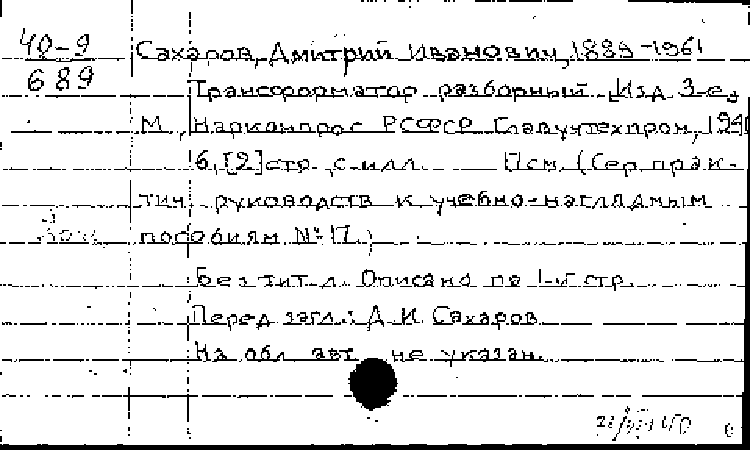 40-9
689
Сахаров, Дмитрий Иванович, 1889-1961
Трансформатор разборный. Изд. 3-е.
М., Наркомпрос РСФСР, Главучтехпром, 1940
6, [2] стр. с илл. (Сер. прак-
тич. руководств к учебно-наглядным
пособиям № 17.)
Без тит. л. Описано по 1-й стр.
Перед загл.: Д. И. Сахаров
На обл. авт. не указан.